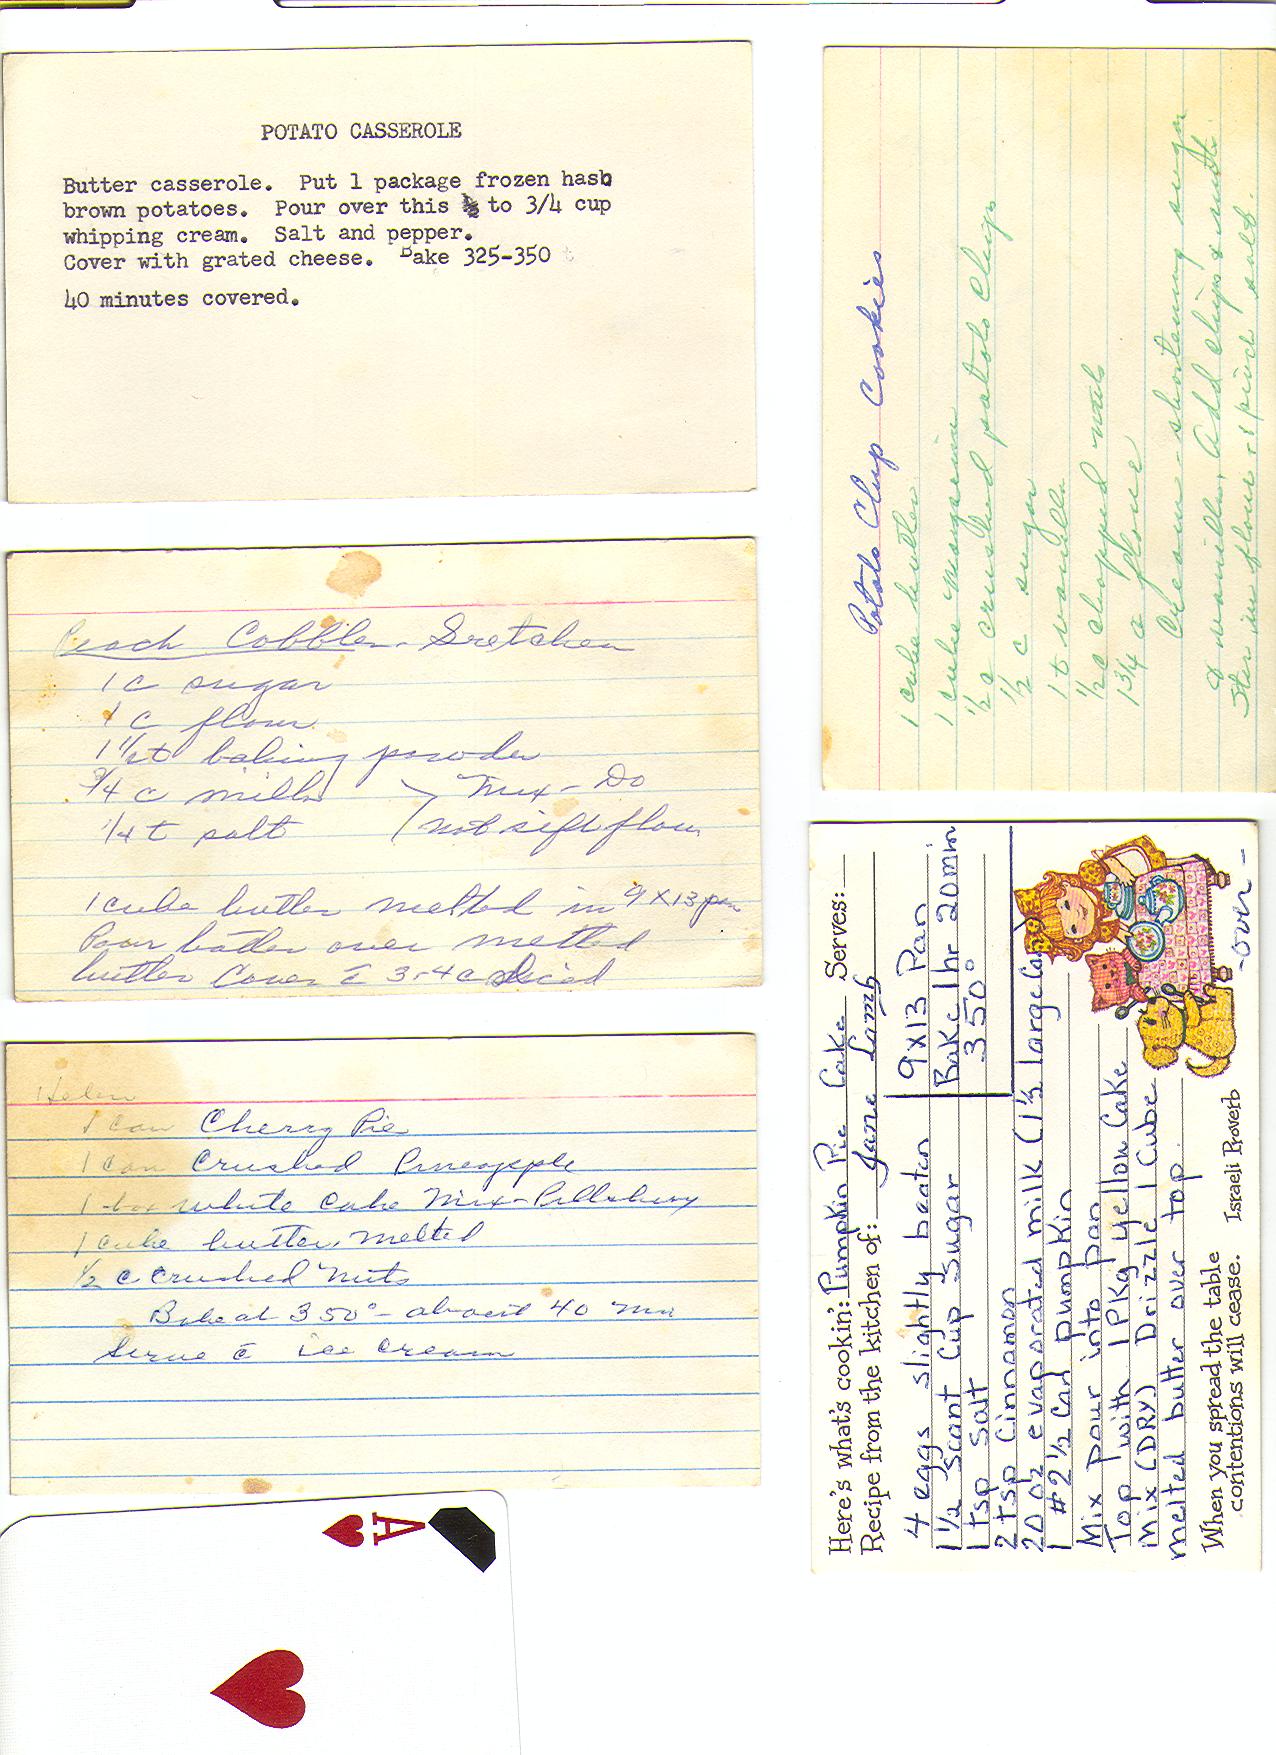 POTATO CASSEROLE
Butter casserole. Put 1 package frozen hash
brown potatoes. Pour over this ½ to 3/4 cup
whipping cream. Salt and pepper.
Cover with grated cheese. Bake 325-350
40 minutes covered.
Peach Cobbler - Gretchen
1 c sugar
1 c flour
1 1/2 t baking powder
3/4 c milk > Mix - Do
1/4 t salt not sift flour
1 cube butter melted in 9 X 13 pan
Pour batter over melted
butter Cover c̄ 3-4 c sliced
Helen
1 can Cherry Pie
1 can Crushed Pineapple
1 box white Cake Mix - Pillsbury
1 cube butter, melted
1/2 c crushed nuts
Bake at 350° - about 40 min
Serve c̄ ice cream
A
Potato Chip Cookies
1 cube butter
1 cube margarine
1/2 c crushed potato chips
1/2 c sugar
1 t vanilla
1/2 c chopped nuts
1 3/4 c flour
Cream - shortening sugar
& vanilla. Add chips & nuts.
Stir in flour + 1 pinch salt.
Here's what's cookin': Pumpkin Pie Cake Serves:
Recipe from the kitchen of: Jane Lamb
4 eggs slightly beaten 9x13 Pan
1 1/2 scant Cup Sugar Bake 1 hr 20 min
1 tsp Salt 350°
2 tsp Cinnamon
20 oz evaporated milk (1 1/2 large Can
1 #2 1/2 Can pumpkin
Mix pour into pan
Top with 1 PKg yellow Cake
Mix (DRY) Drizzle 1 Cube
melted butter over top.
When you spread the table
contentions will cease. Israeli Proverb
-over-